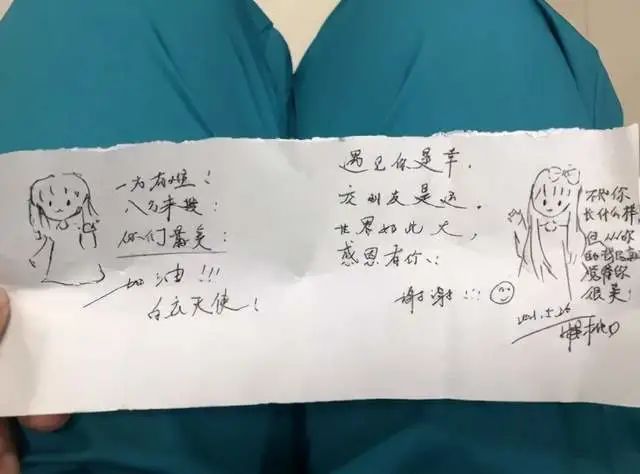 一方有难!
八方来援:
你们最美:
加油!!!
白衣天使!
遇见你是幸,
交友是运.
世界如此大,
感恩有你:
谢谢!!!
不知你
长什么样
但从你
的
觉得你
很美!
2021.5.26